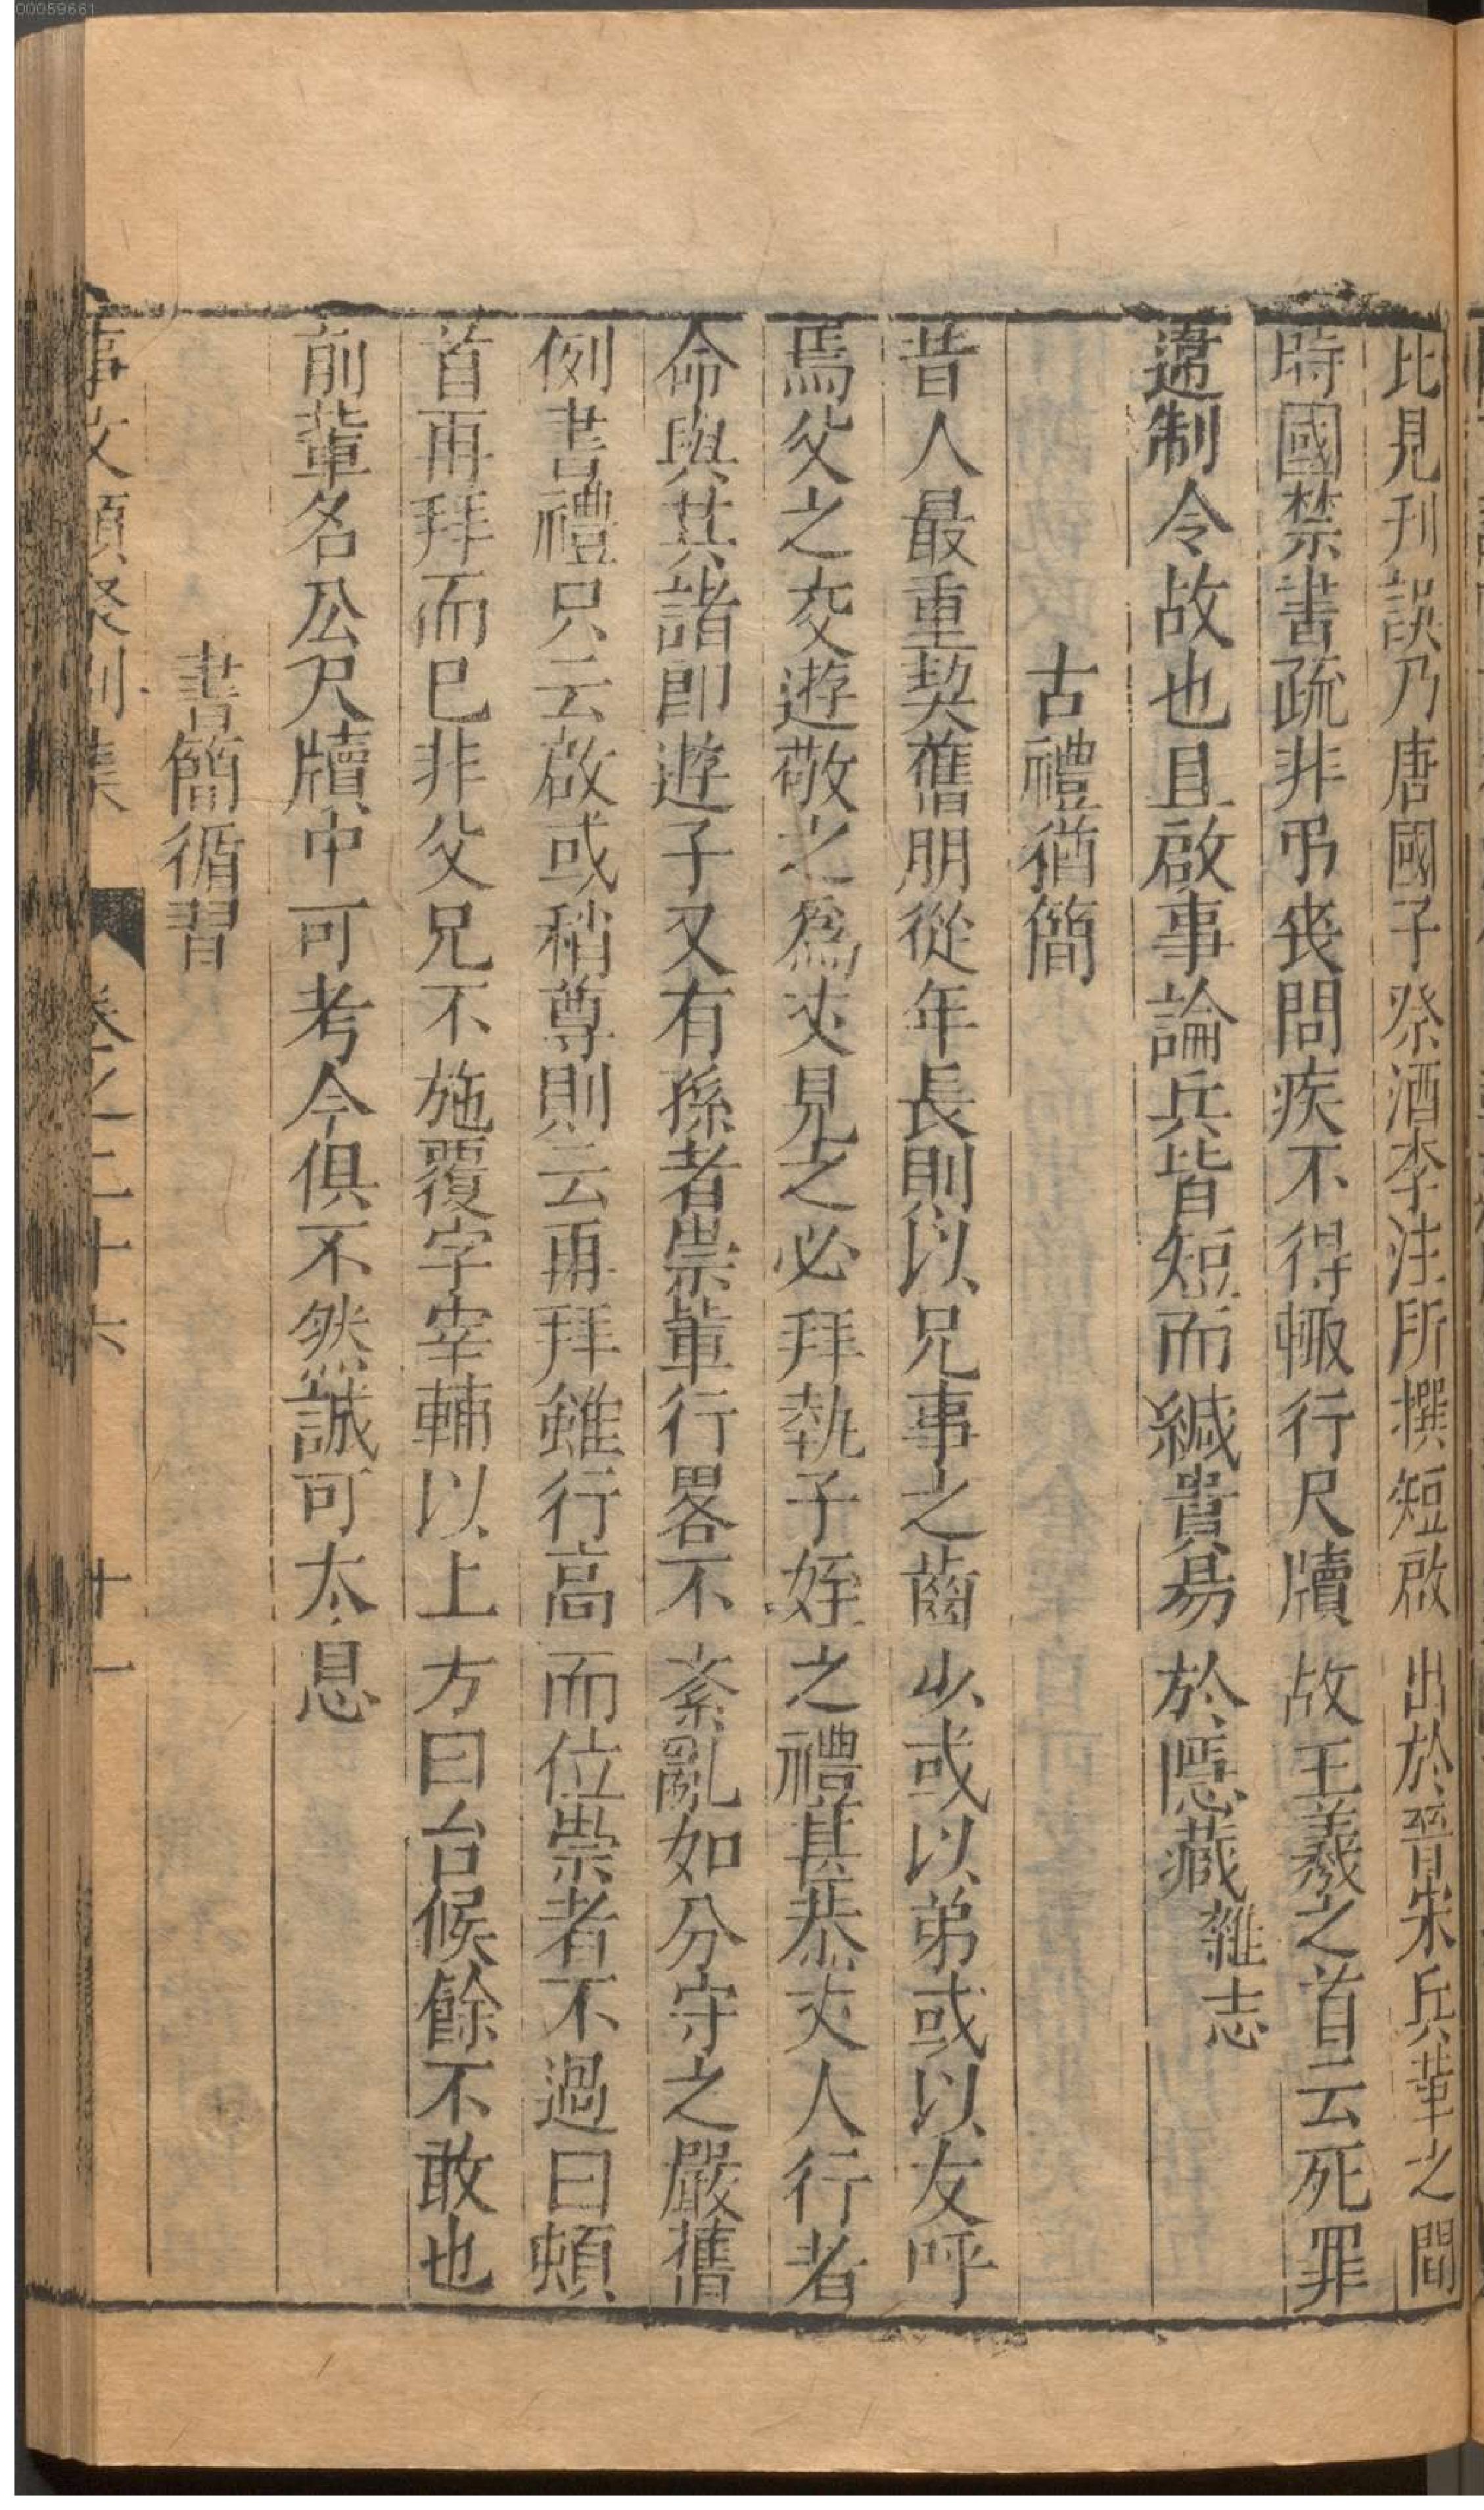 比見刊誤乃唐國子祭酒李涪所撰短啟出於晉宋兵革之間
時國禁書疏非弔喪問疾不得輙行尺牘故王羲之首云死罪
違制令故也且啟事論兵皆短而緘貴易於隱藏雜志
古禮猶簡
昔人最重契舊朋從年長則以兄事之齒少或以弟或以友呼
焉父之交遊敬之為丈見之必拜執子姪之禮甚恭丈人行者
命與其諸郎遊子又有孫者崇輩行畧不紊亂如分守之嚴舊
例書禮只云啟或稍尊則云再拜雖行高而位崇者不過曰頓
首再拜而已非父兄不施覆字宰輔以上方曰台候餘不敢也
前輩名公尺牘中可考今俱不然誠可太息
書簡循習
事文類聚別集 卷之二十六 十一
00059661